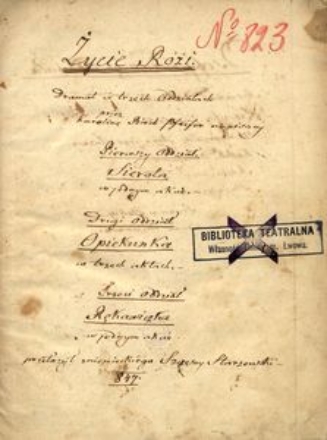 No 823
Życie Róży.
Dramat w trzech Oddziałach
przez
Karolinę Birch Pfeifer napisany
Pierwszy Oddział.
Sierota
w jednym akcie.
Drugi Oddział
Opiekunka
w trzech aktach.
BIBLIOTEKA TEATRALNA
Własność m. Lwowa.
Trzeci Oddział
w jednym akcie
przełożył z niemieckiego Szczęsny Starzewski
847.